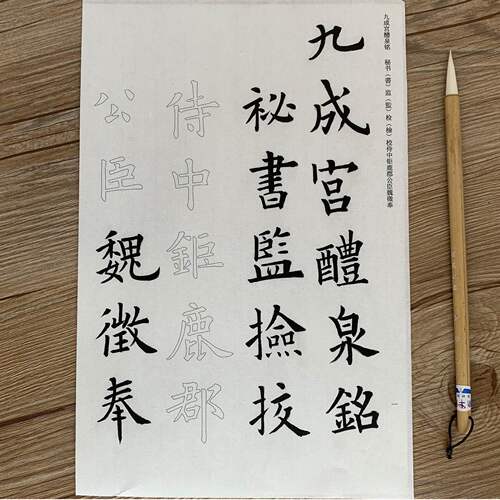 九成宫醴泉铭 秘书（書）监（監）检（檢）校侍中钜鹿郡公臣魏徵奉
九成宫醴泉銘
祕書監撿挍
侍中鉅鹿郡
公臣魏徵奉